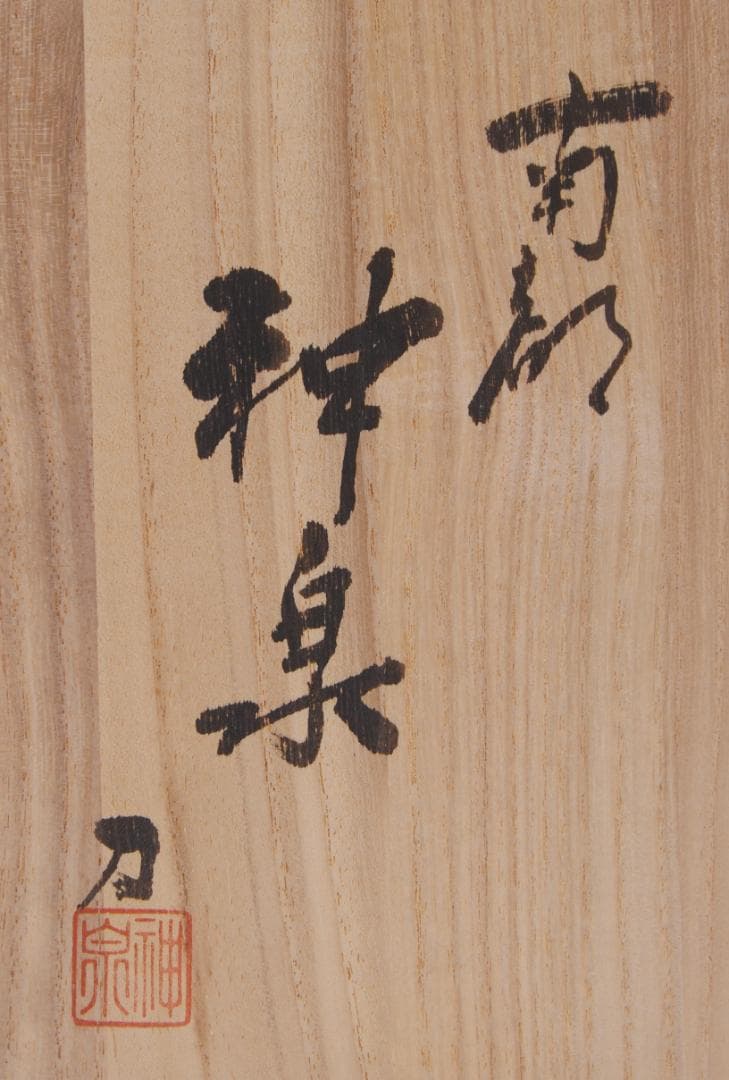 南部
神泉
刀
神泉